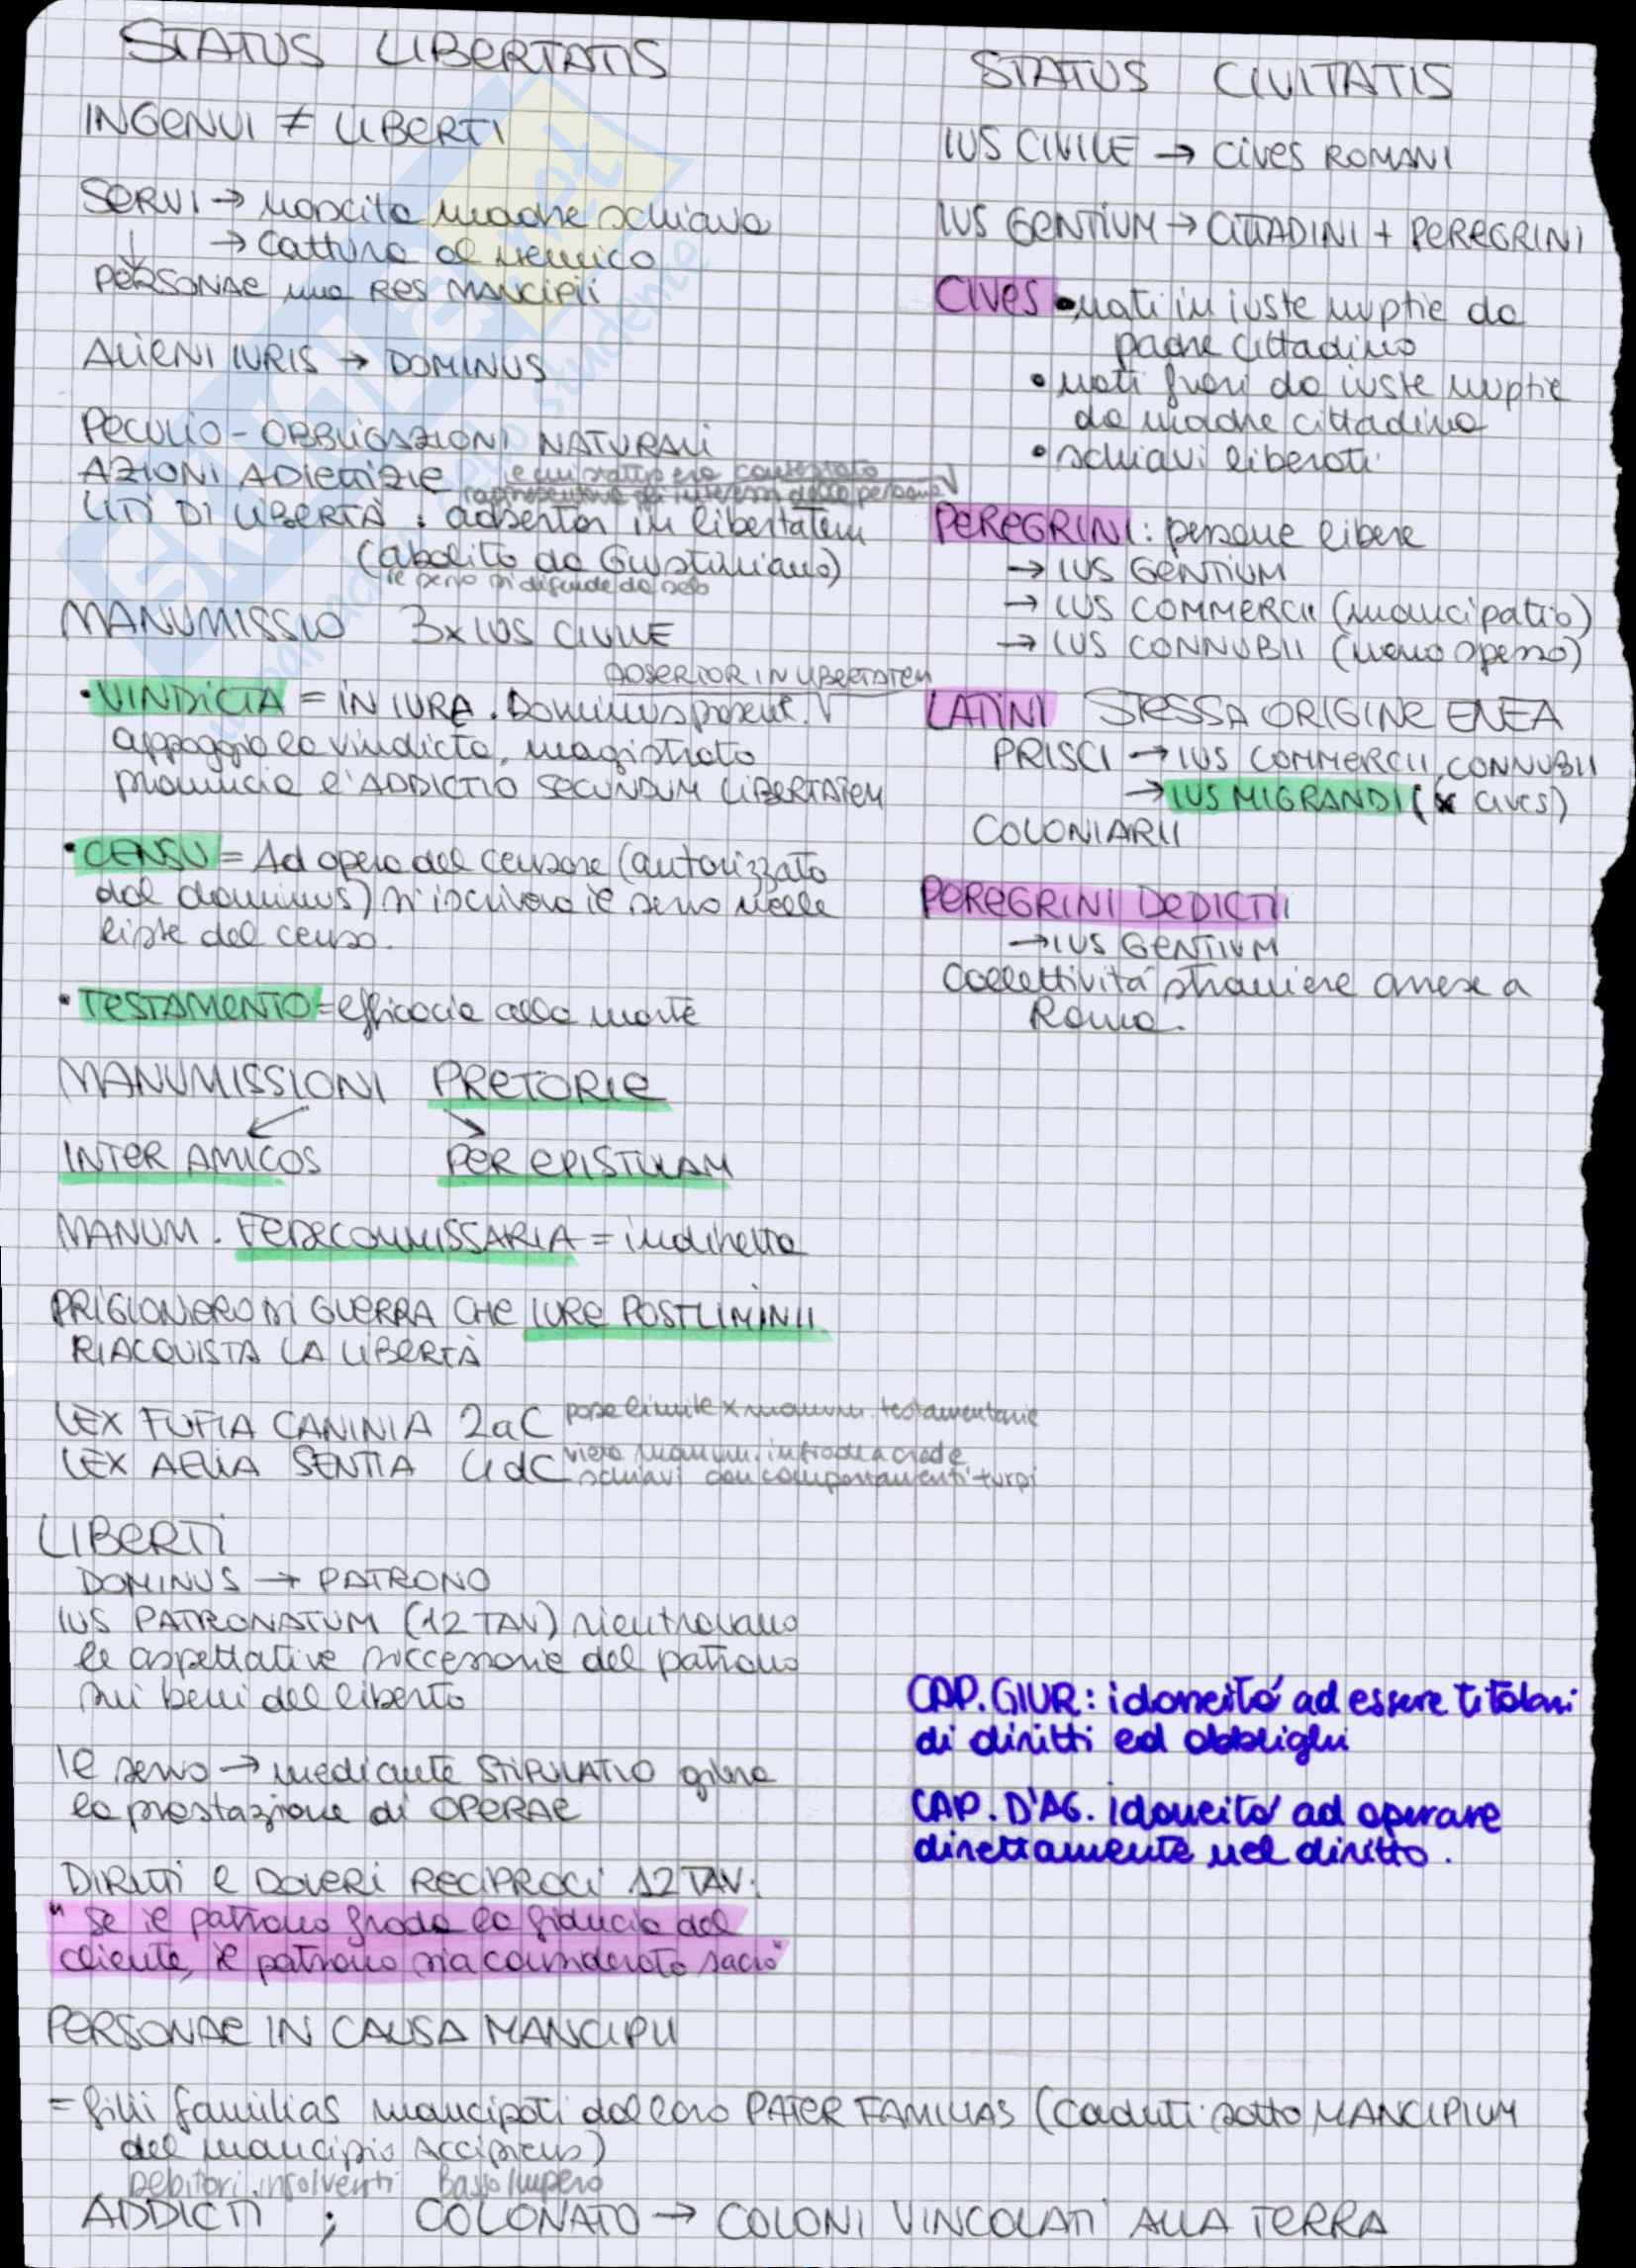 STATUS LIBERTATIS
INGENUI ≠ LIBERTI
SERVI → nascita madre schiava
→ cattura al nemico
↓
PERSONAE ma RES MANCIPII
ALIENI IURIS → DOMINUS
PECULIO - OBBLIGAZIONI NATURALI
AZIONI ADIETTIZIE
LITI DI LIBERTÀ : adsertor in libertatem
(abolito da Giustiniano)
il servo si difende da solo
MANUMISSIO 3x IUS CIVILE
ADSERTOR IN LIBERTATEM
• VINDICTA = IN IURA. Dominus present.
appoggia la vindicta, magistrato
pronuncia l'ADDICTIO SECUNDUM LIBERTATEM
• CENSU = Ad opera del censore (autorizzato
dal dominus) si iscriveva il servo nelle
liste del censo.
• TESTAMENTO = efficacia alla morte
MANUMISSIONI PRETORIE
INTER AMICOS PER EPISTULAM
MANUM. FEDECOMMISSARIA = indiretta
PRIGIONIERO DI GUERRA CHE IURE POSTLIMINII
RIACQUISTA LA LIBERTÀ
LEX FUFIA CANINIA 2aC pose limite x manum. testamentarie
LEX AELIA SENTIA 4dC vieta manum. in frode a cred e
schiavi con comportamenti turpi
LIBERTI
DOMINUS → PATRONO
IUS PATRONATUM (12 TAV) rientravano
le aspettative successorie del patrono
sui beni del liberto
Il servo → mediante STIPULATIO giura
la prestazione di OPERAE
DIRITTI e DOVERI RECIPROCI 12 TAV:
"Se il patrono froda la fiducia del
cliente, il patrono sia considerato sacro"
PERSONAE IN CAUSA MANCIPII
= filii familias mancipati dal loro PATER FAMILIAS (caduti sotto MANCIPIUM
del mancipio accipiens)
Debitori insolventi Basso Impero
ADDICTI ; COLONATO → COLONI VINCOLATI ALLA TERRA
STATUS CIVITATIS
IUS CIVILE → CIVES ROMANI
IUS GENTIUM → CITTADINI + PEREGRINI
CIVES • nati in iuste nuptie da
padre cittadino
• nati fuori da iuste nuptie
da madre cittadina
• schiavi liberati
PEREGRINI : persone libere
→ IUS GENTIUM
→ IUS COMMERCII (mancipatio)
→ IUS CONNUBII (meno spesso)
LATINI STESSA ORIGINE ENEA
PRISCI → IUS COMMERCII, CONNUBII
→ IUS MIGRANDI (x cives)
COLONIARII
PEREGRINI DEDICTII
→ IUS GENTIUM
Collettività straniere annesse a
Roma.
CAP. GIUR: idoneità ad essere titolari
di diritti ed obblighi
CAP. D'AG. idoneità ad operare
direttamente nel diritto.